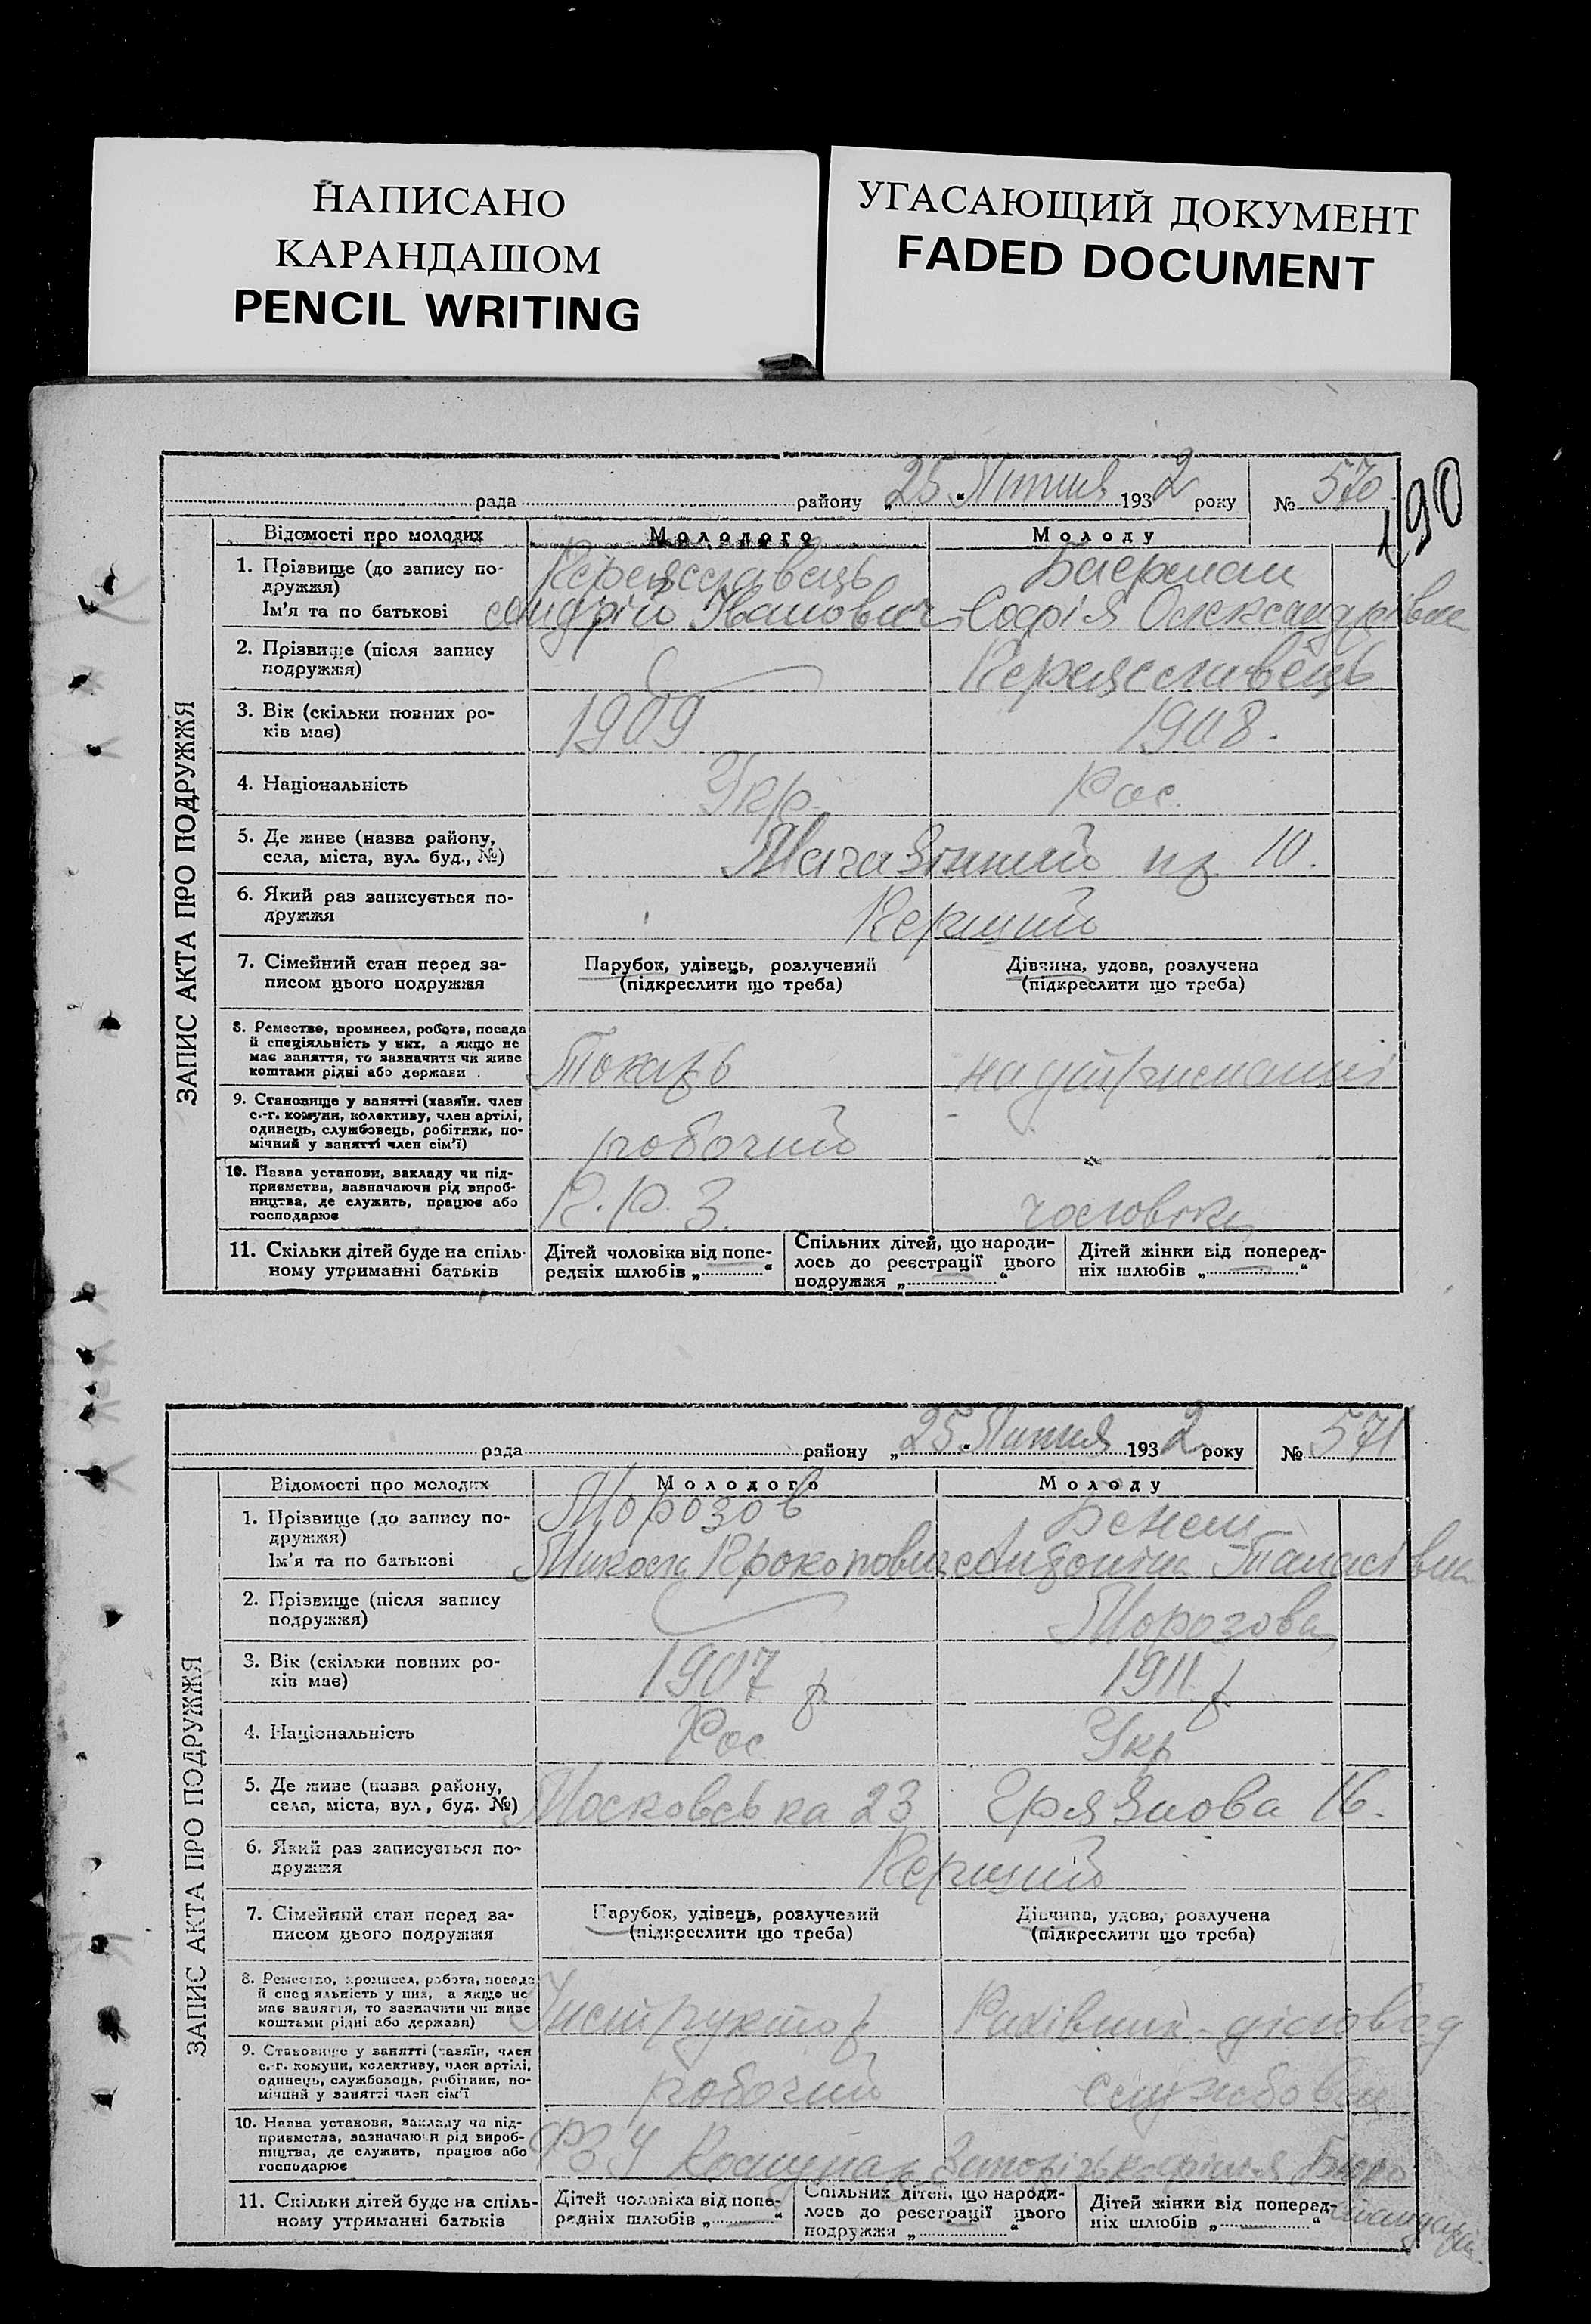 НАПИСАНО
КАРАНДАШОМ
PENCIL WRITING
УГАСАЮЩИЙ ДОКУМЕНТ
FADED DOCUMENT
190
ЗАПИС АКТА ПРО ПОДРУЖЖЯ
рада району „25“ Липня 1932 року № 570
Відомості про молодих Молодого Молоду
1. Прізвище (до запису по-
дружжя)
Ім’я та по батькові
Переяславець
Андрій Іванович
Баерман
Софія Олександрівна
2. Прізвище (після запису
подружжя)
Переяславець
3. Вік (скільки повних ро-
ків має)
1909 1908.
4. Національність Укр. Рос.
5. Де живе (назва району,
села, міста, вул. буд., №)
Магазінний 10.
6. Який раз записується по-
дружжя
Перший
7. Сімейний стан перед за-
писом цього подружжя
Парубок, удівець, розлучений
(підкреслити що треба)
Дівчина, удова, розлучена
(підкреслити що треба)
8. Ремество, промисел, робота, посада
й спеціяльність у них, а якщо не
має заняття, то зазначити чи живе
коштами рідні або держави .
Токарь на утриманні
9. Становище у занятті (хазяїн. член
с.-г. комуни, колективу, член артілі,
одинець, службовець, робітник, по-
мічний у занятті член сім’ї)
робочий
10. Назва установи, закладу чи під-
приємства, зазначаючи рід вироб-
ництва, де служить, працює або
господарює
П. Р. З. чоловіка
11. Скільки дітей буде на спіль-
ному утриманні батьків
Дітей чоловіка від попе-
редніх шлюбів „ “
Спільних дітей, що народи-
лось до реєстрації цього
подружжя „ “
Дітей жінки від поперед-
ніх шлюбів „ “
ЗАПИС АКТА ПРО ПОДРУЖЖЯ
рада району „25 Липня 1932 року № 571
Відомості про молодих Молодого Молоду
1. Прізвище (до запису по-
дружжя)
Ім’я та по батькові
Морозов
Микола Прокопович
Антоніна Танасівна
2. Прізвище (після запису
подружжя)
Морозова
3. Вік (скільки повних ро-
ків має)
1907 р 1911 р
4. Національність Рос Укр
5. Де живе (назва району,
села, міста, вул, буд. №)
Московська 23 Грязнова 16.
6. Який раз записується по-
дружжя
Перший
7. Сімейний стан перед за-
писом цього подружжя
Парубок, удівець, розлучений
(підкреслити що треба)
Дівчина, удова, розлучена
(підкреслити що треба)
8. Ремество, промисел, робота, посада
й спеціяльність у них, а якщо не
має заняття, то зазначити чи живе
коштами рідні або держави)
Інструктор Рахівник-діловод
9. Становище у занятті (хазяїн, член
с.-г. комуни, колективу, член артілі,
одинець, службовець, робітник, по-
мічний у занятті член сім’ї
робочий службовец
10. Назва установи, закладу чи під-
приємства, зазначаючи рід вироб-
ництва, де служить, працює або
господарює
ФЗУ Комунар Бюро
11. Скільки дітей буде на спіль-
ному утриманні батьків
Дітей чоловіка від попе-
редніх шлюбів „ “
Спільних дітей, що народи-
лось до реєстрації цього
подружжя „ “
Дітей жінки від поперед-
ніх шлюбів „ “